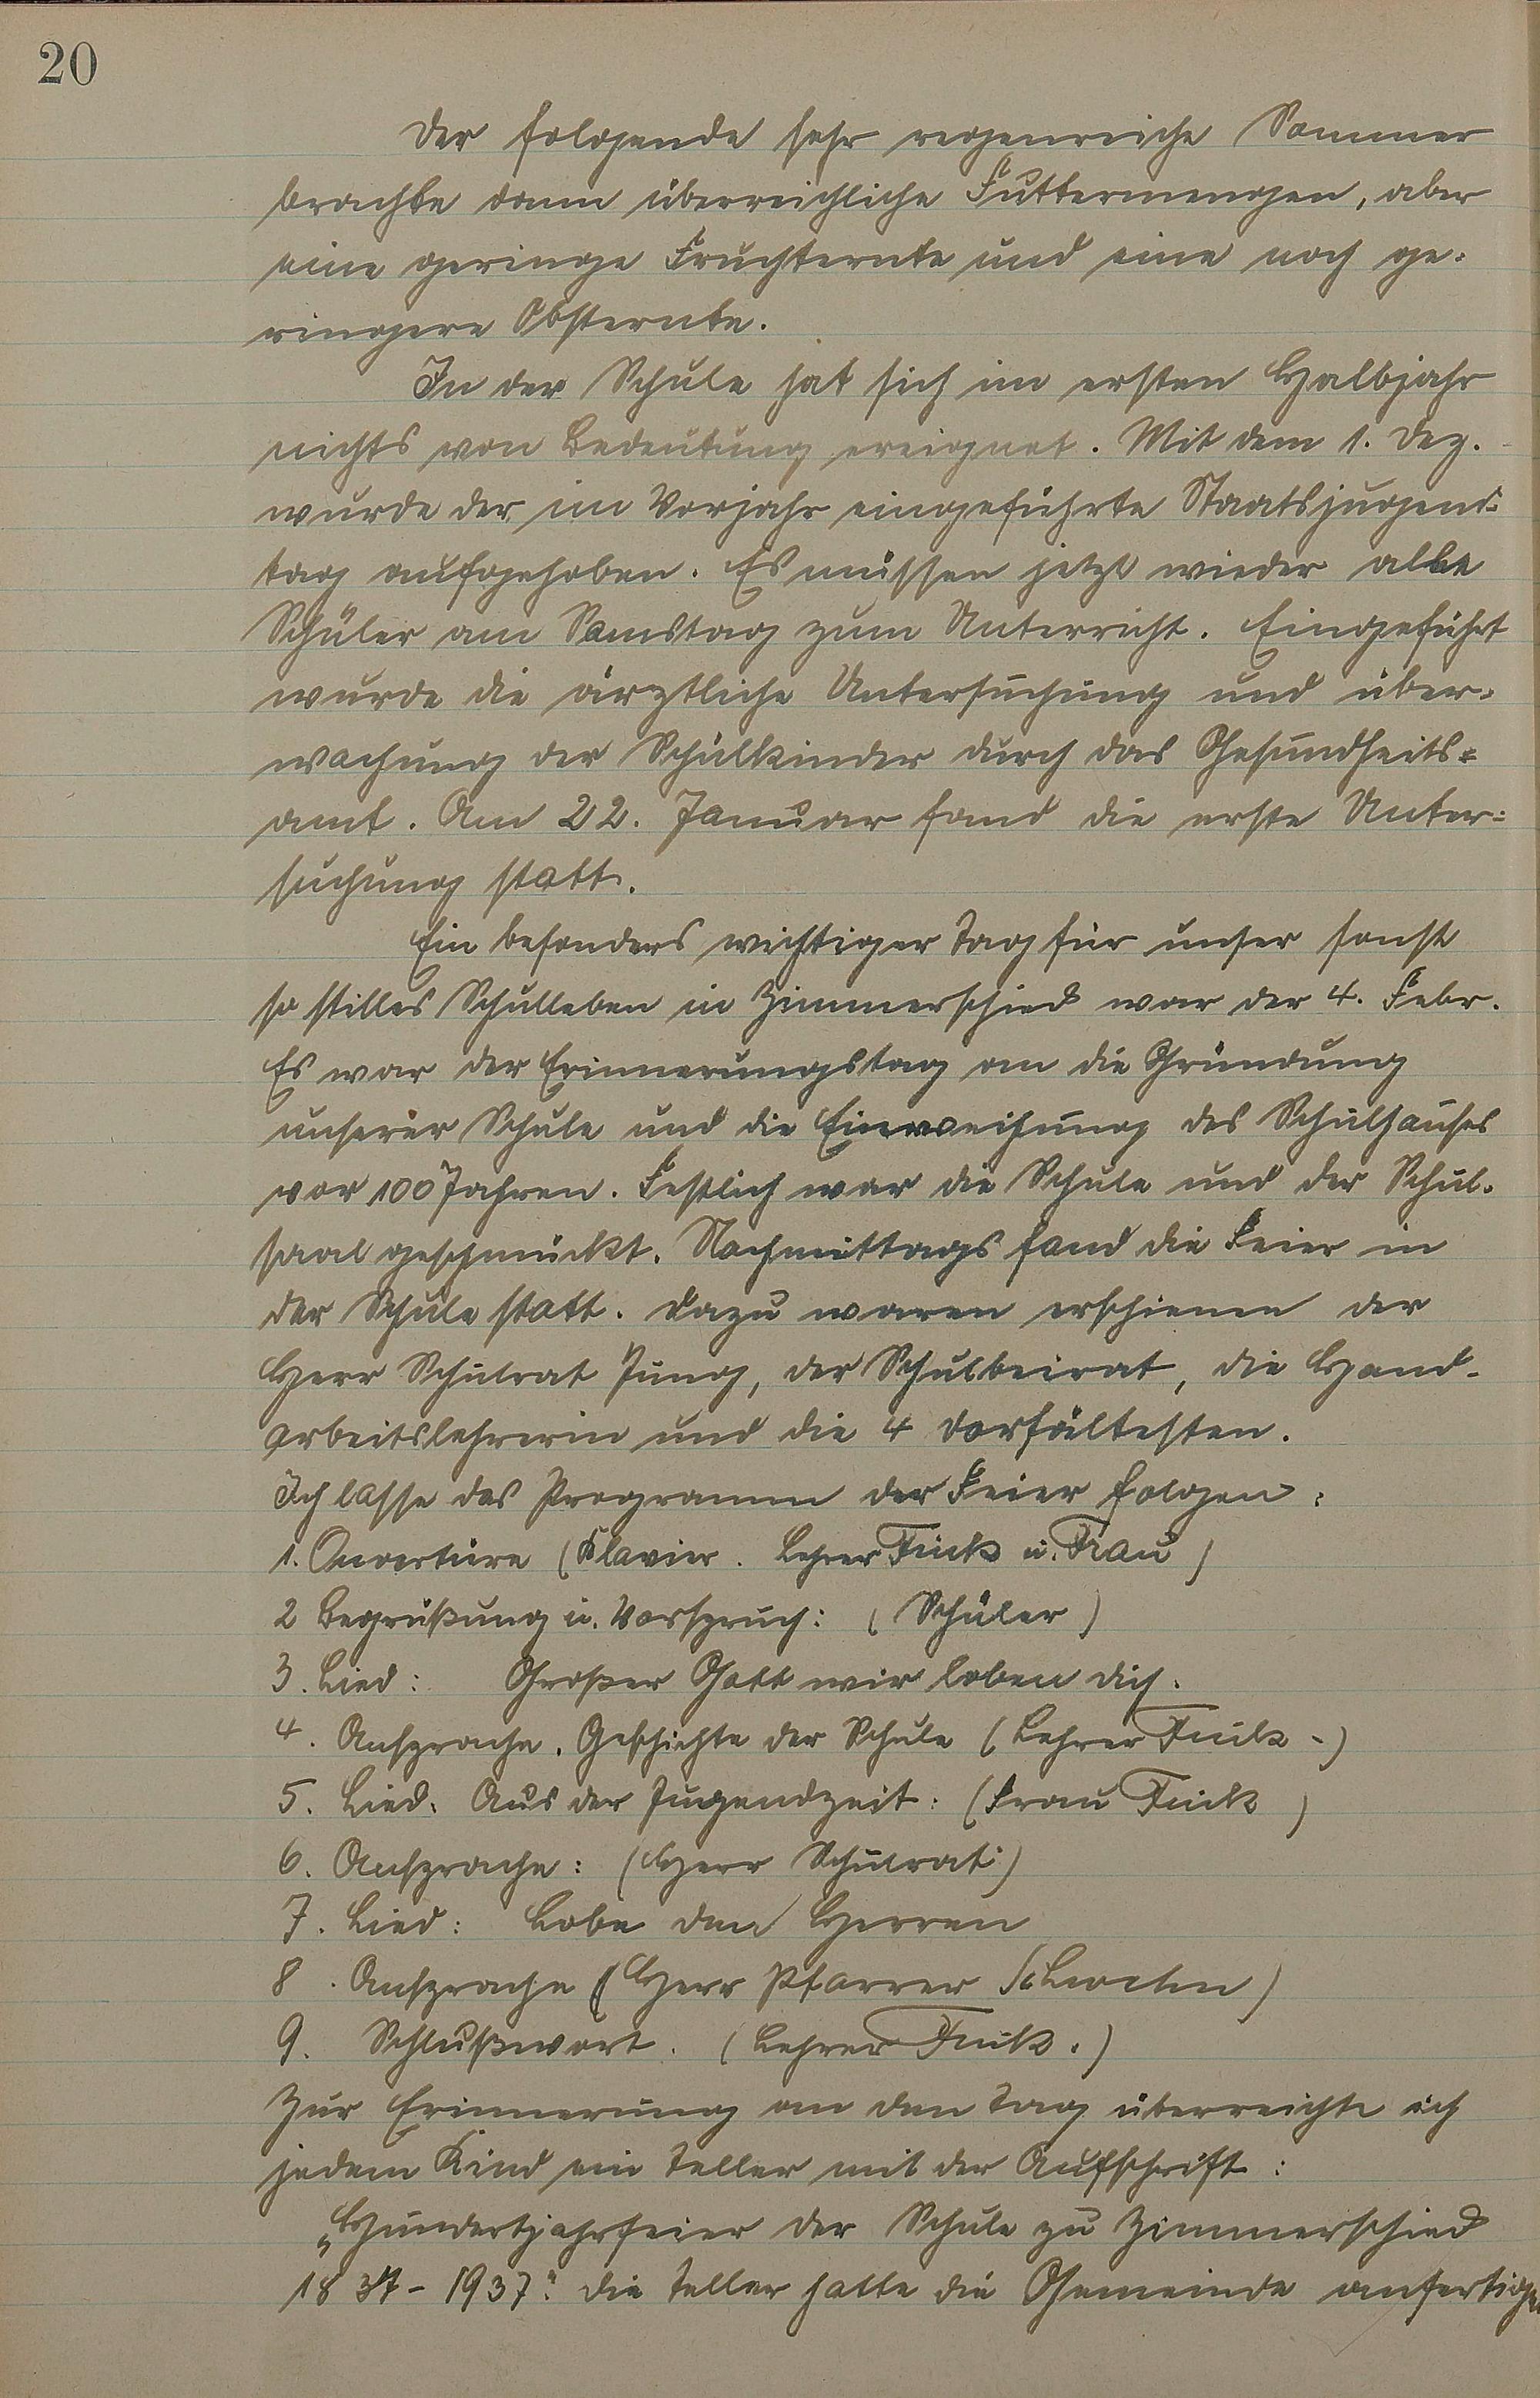 20
Der folgende sehr regenreiche Sommer
brachte dann überreichliche Futtermengen, aber
eine geringe Fruchternte und eine noch ge-
ringere Obsternte.
In der Schule hat sich im ersten Halbjahr
nichts von Bedeutung ereignet. Mit dem 1. Dez.
wurde der im Vorjahr eingeführte Staatsjugend-
tag aufgehoben. Es müssen jetzt wieder alle
Schüler am Samstag zum Unterricht. Eingeführt
wurde die ärztliche Untersuchung und über-
wachung der Schulkinder durch das Gesundheits-
amt. Am 22. Januar fand die erste Unter-
suchung statt.
Ein besonders wichtiger Tag für unser sonst
so stilles Schulleben in Zimmerschied war der 4. Febr.
Es war der Erinnerungstag an die Gründung
unserer Schule und die Einweihung des Schulhauses
vor 100 Jahren. Festlich war die Schule und der Schul-
saal geschmückt. Nachmittags fand die Feier in
der Schule statt. Dazu waren erschienen der
Herr Schulrat Jung, der Schulbeirat, die Hand-
arbeitslehrerin und die 4 Dorfältesten.
Ich lasse das Programm der Feier folgen:
1. Ouvertüre (Klavier. Lehrer u. Frau)
2 Begrüßung u. Vorspruch: (Schüler)
3. Lied: Großer Gott wir loben dich.
4. Ansprache. Geschichte der Schule (Lehrer -)
5. Lied. Aus der Jugendzeit: (Frau )
6. Ansprache: (Herr Schulrat)
7. Lied: Lobe den Herren
8. Ansprache (Herr Pfarrer )
9. Schlußwort. (Lehrer .)
Zur Erinnerung an den Tag überreichte ich
jedem Kind ein Teller mit der Aufschrift:
„Hundertjahrfeier der Schule zu Zimmerschied
1837 - 1937". Die Teller hatte die Gemeinde anfertigen